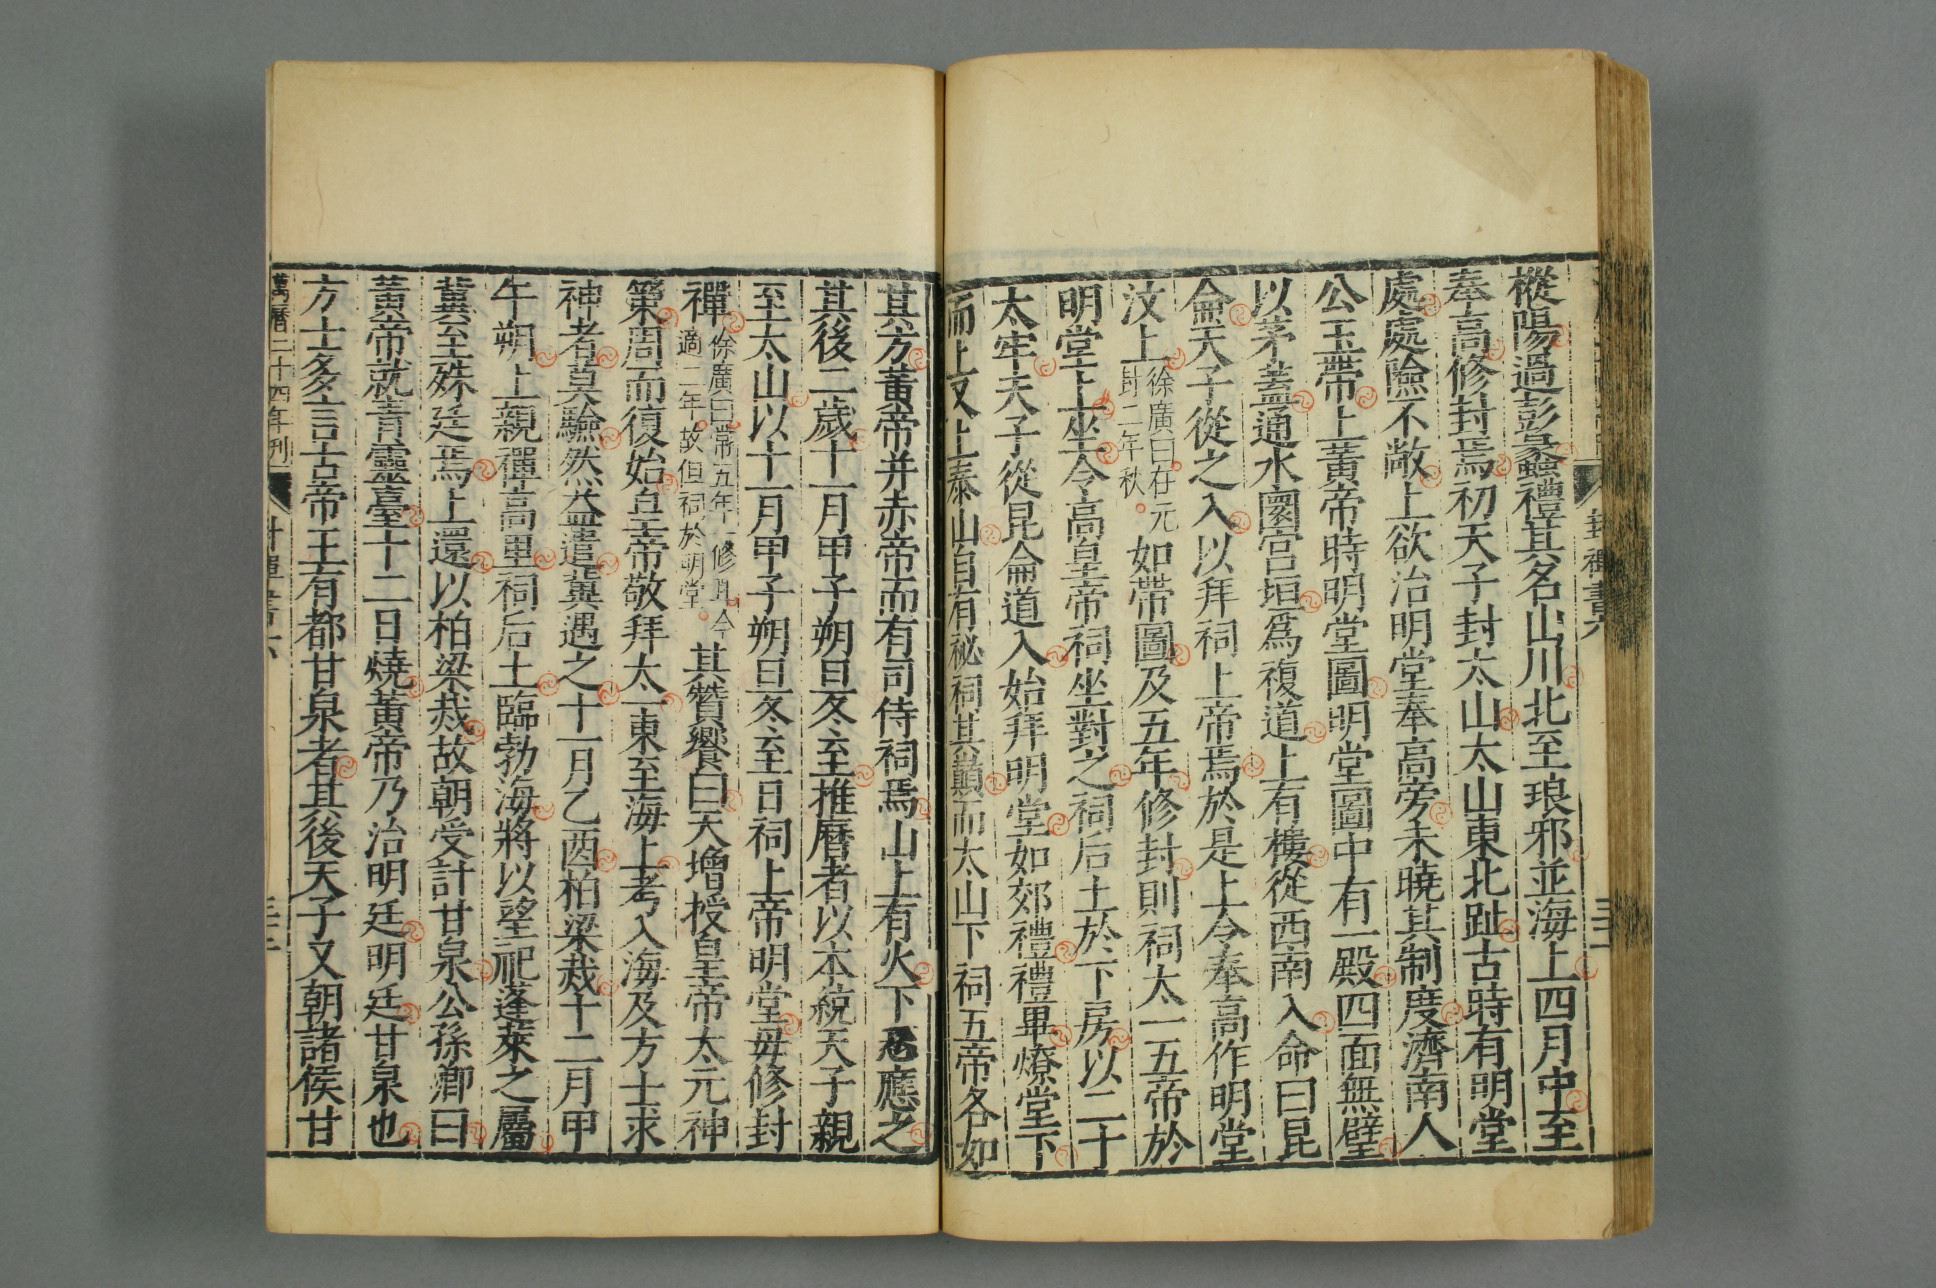 封禪書六
樅陽過彭蠡禮其名山川北至琅邪並海上四月中至
奉高修封焉初天子封太山太山東北趾古時有明堂
處處險不敞上欲治明堂奉高旁未曉其制度濟南人
公玉帶上黃帝時明堂圖明堂圖中有一殿四面無壁
以茅蓋通水圜宮垣爲複道上有樓從西南入命曰昆
侖天子從之入以拜祠上帝焉於是上令奉高作明堂
汶上徐廣曰在元封二年秋如帶圖及五年修封則祠太一五帝於
明堂上坐令高皇帝祠坐對之祠后土於下房以二十
太牢天子從昆侖道入始拜明堂如郊禮禮畢燎堂下
而上又上泰山自有祕祠其巔而太山下祠五帝各如
其方黃帝并赤帝而有司侍祠焉山上有火下悉應之
其後二歲十一月甲子朔旦冬至推曆者以本統天子親
至太山以十一月甲子朔旦冬至日祠上帝明堂毋修封
禪徐廣曰常五年一修耳今適二年故但祠於明堂其贊饗曰天增授皇帝太元神
策周而復始皇帝敬拜太一東至海上考入海及方士求
神者莫驗然益遣冀遇之十一月乙酉柏梁烖十二月甲
午朔上親禪高里祠后土臨勃海將以望祀蓬萊之屬
冀至殊廷焉上還以柏梁烖故朝受計甘泉公孫卿曰
黃帝就青靈臺十二日燒黃帝乃治明廷明廷甘泉也
方士多言古帝王有都甘泉者其後天子又朝諸侯甘
萬曆二十四年刊
封禪書六